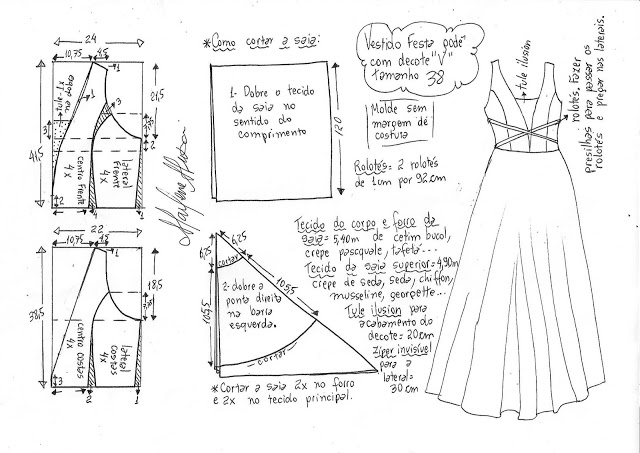 Vestido Festa pode
com decote "V"
tamanho 38
Molde sem
margem de
costura
Rolotês: 2 rolotês
de 1cm por 92cm
*Como cortar a saia:
1- Dobre o tecido
da saia no
sentido do
comprimento
120
6,25
6,25
cortar
1055
1055
2- dobre a
ponta direita
na barra
esquerda.
cortar
*Cortar a saia 2x no forro
e 2x no tecido principal.
Tecido do corpo e forro da
saia= 5,40m de cetim bucol,
crepe pascquale, tafetá...
Tecido da saia superior= 4,90m
crepe de seda, seda, chiffon,
musseline, georgette...
Tule ilusion para
acabamento do
decote= 20cm
Zíper invisível
para a
lateral=
30cm
tule ilusion
rolotês. Fazer
presilhas para passar os
rolotês e pregar nas laterais.
24
10,75
4,5
1
3
21,5
2
3
41,5
2
4
1
tule-1x
na dobra
centro frente
4x
lateral
frente
4x
22
10,75
4,5
1
18,5
38,5
3
2
1
centro costas
4x
lateral
costas
4x